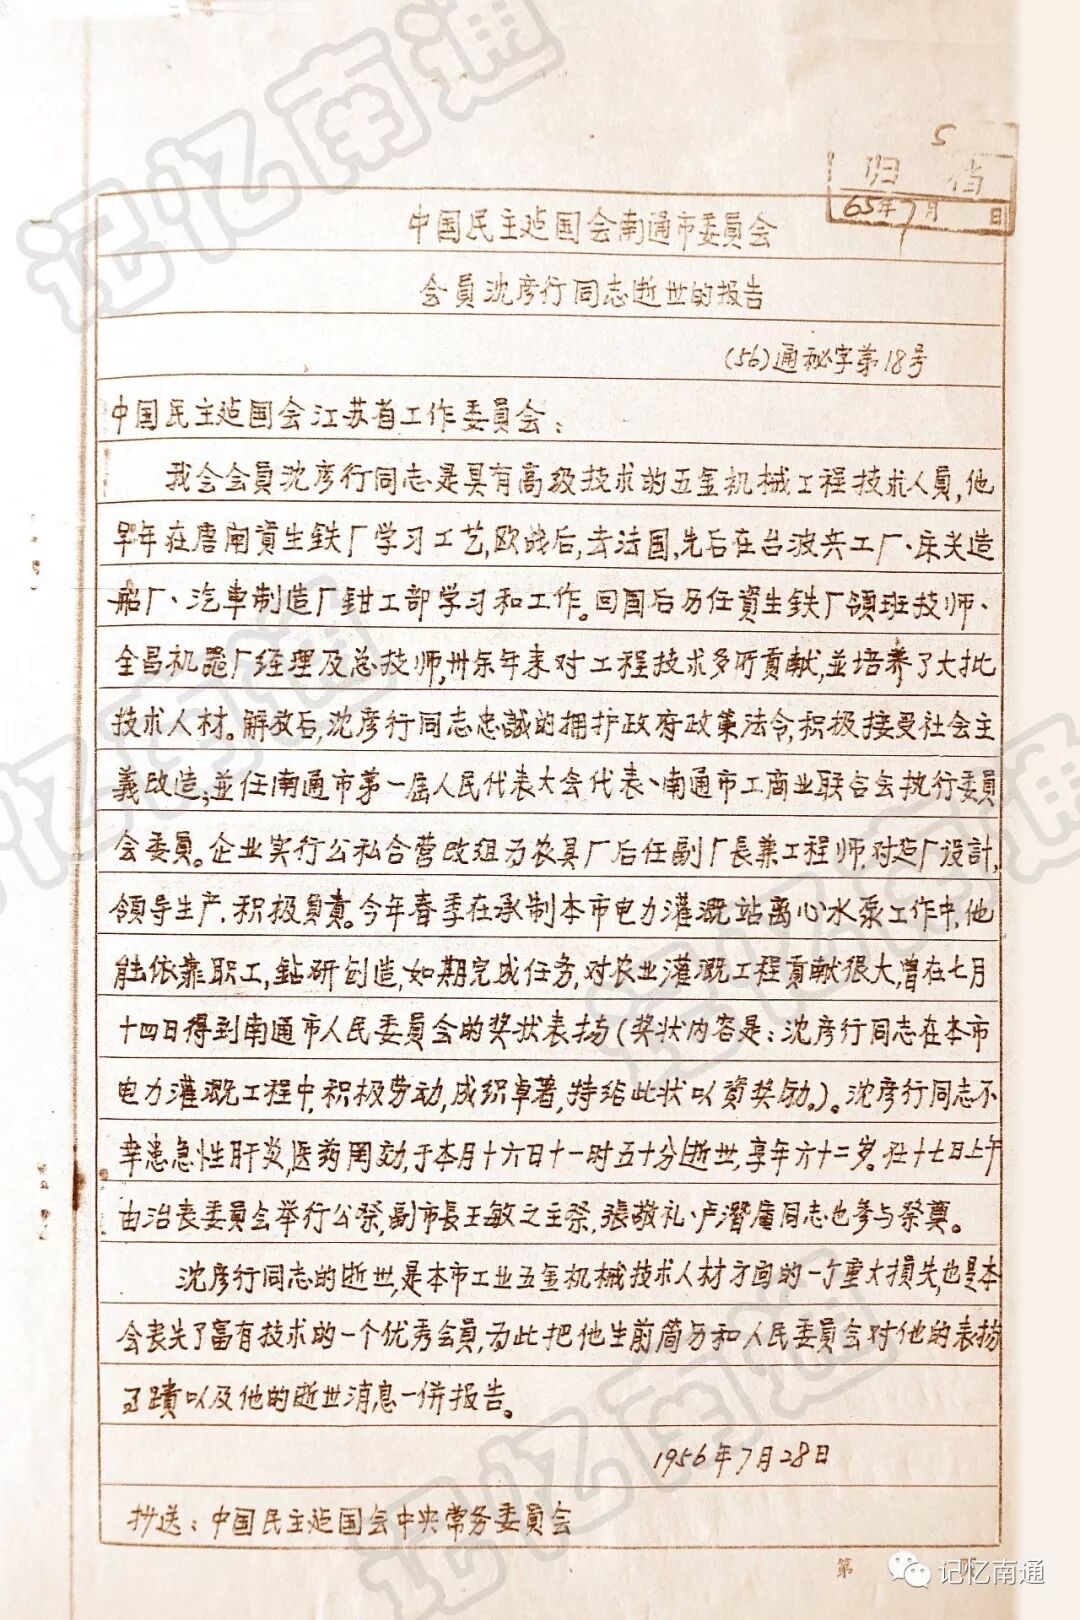 5
归档
65年7月 日
中国民主建国会南通市委員会
会員沈彦行同志逝世的报告
(56)通秘字第18号
中国民主建国会江苏省工作委員会：
我会会員沈彦行同志是具有高级技术的五金机械工程技术人員,他
早年在唐闸資生鉄厂学习工艺,欧战后,去法国,先后在台波兵工厂、床夹造
船厂、汽車制造厂鉗工部学习和工作。回国后历任資生鉄厂領班技师、
全昌机器厂经理及总技师,卅余年来对工程技术多所貢献,並培养了大批
技术人材。解放后,沈彦行同志忠誠的拥护政府政策法令,积极接受社会主
義改造,並任南通市第一届人民代表大会代表、南通市工商业联合会执行委員
会委員。企业实行公私合营改组为农具厂后任副厂長兼工程师,对建厂設計,
領导生产,积极負責。今年春季在承制本市电力灌溉站离心水泵工作中,他
能依靠职工,鉆研创造,如期完成任务,对农业灌溉工程貢献很大,曾在七月
十四日得到南通市人民委員会的奖状表扬(奖状内容是：沈彦行同志在本市
电力灌溉工程中,积极劳动,成织卓著,特给此状以資奖励。)。沈彦行同志不
幸患急性肝炎,医药罔効,于本月十六日十一时五十分逝世,享年六十二岁。在十七日上午
由治丧委員会举行公祭,副市長王敏之主祭,張敬礼、卢潛庵同志也参与祭奠。
沈彦行同志的逝世,是本市工业五金机械技术人材方面的一个重大損失,也是本
会丧失了富有技术的一个优秀会員,为此把他生前简历和人民委員会对他的表扬
了蹟以及他的逝世消息一併报告。
1956年7月28日
抄送：中国民主建国会中央常务委員会
第
记忆南通